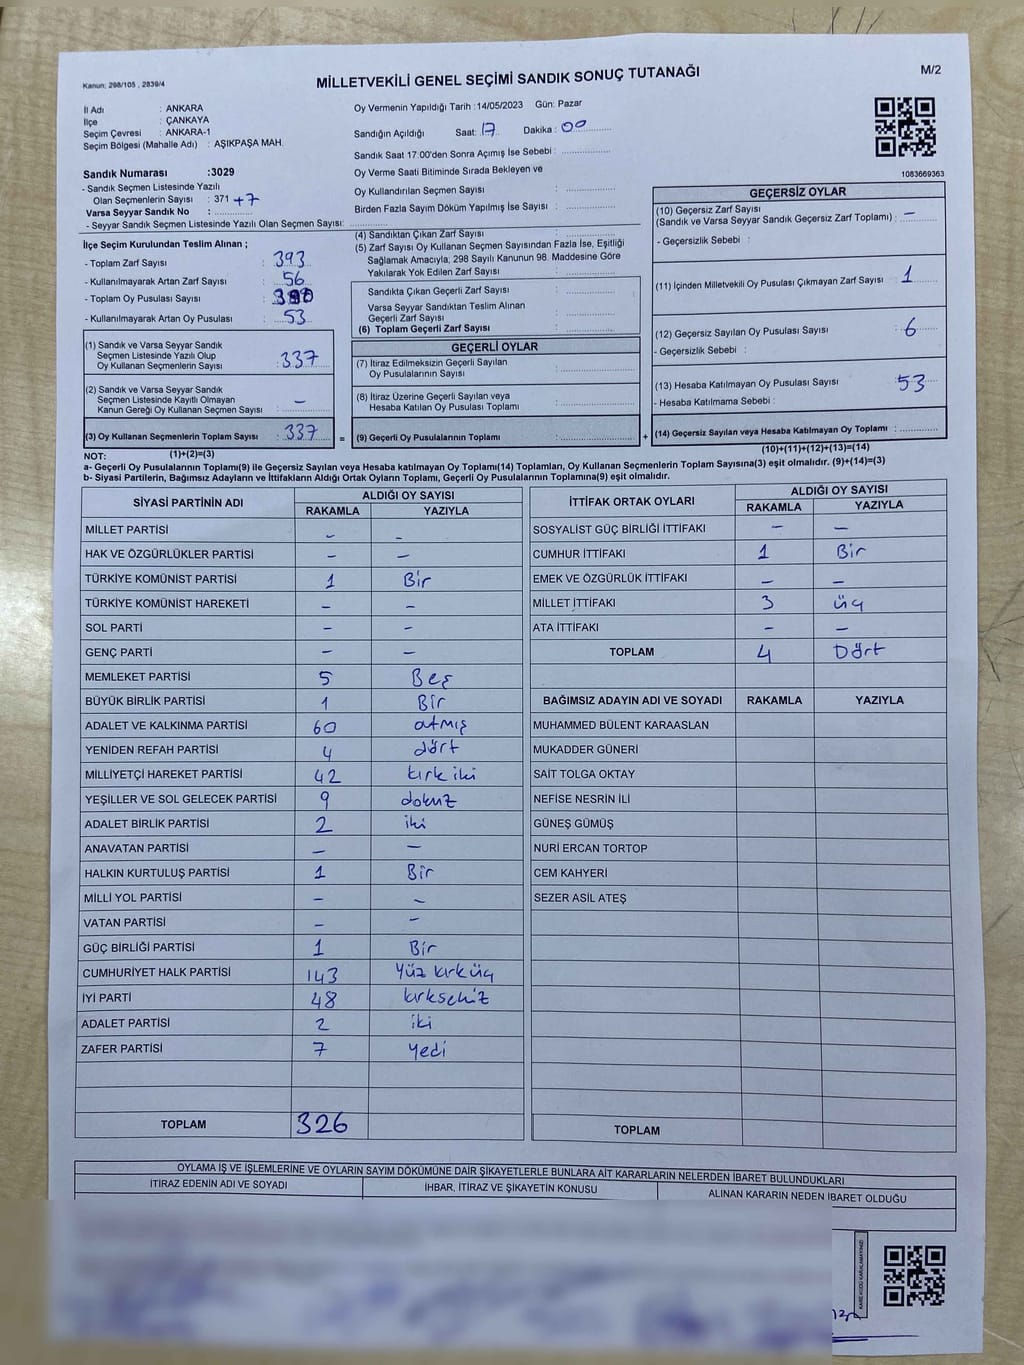 Kanun: 298/105 , 2839/4
MİLLETVEKİLİ GENEL SEÇİMİ SANDIK SONUÇ TUTANAĞI
M/2
İl Adı : ANKARA
İlçe : ÇANKAYA
Seçim Çevresi : ANKARA-1
Seçim Bölgesi (Mahalle Adı) : AŞIKPAŞA MAH.
Sandık Numarası :3029
- Sandık Seçmen Listesinde Yazılı
Olan Seçmenlerin Sayısı : 371 +7
Varsa Seyyar Sandık No :
- Seyyar Sandık Seçmen Listesinde Yazılı Olan Seçmen Sayısı:
Oy Vermenin Yapıldığı Tarih :14/05/2023 Gün: Pazar
Sandığın Açıldığı Saat: 17 Dakika : 00
Sandık Saat 17:00'den Sonra Açımış İse Sebebi :
Oy Verme Saati Bitiminde Sırada Bekleyen ve
Oy Kullandırılan Seçmen Sayısı :
Birden Fazla Sayım Döküm Yapılmış İse Sayısı :
1083669363
İlçe Seçim Kurulundan Teslim Alınan ;
- Toplam Zarf Sayısı : 393
- Kullanılmayarak Artan Zarf Sayısı : 56
- Toplam Oy Pusulası Sayısı :
- Kullanılmayarak Artan Oy Pusulası : 53
(1) Sandık ve Varsa Seyyar Sandık
Seçmen Listesinde Yazılı Olup
Oy Kullanan Seçmenlerin Sayısı : 337
(2) Sandık ve Varsa Seyyar Sandık
Seçmen Listesinde Kayıtlı Olmayan
Kanun Gereği Oy Kullanan Seçmen Sayısı : -
(3) Oy Kullanan Seçmenlerin Toplam Sayısı : 337
(4) Sandıktan Çıkan Zarf Sayısı :
(5) Zarf Sayısı Oy Kullanan Seçmen Sayısından Fazla İse, Eşitliği
Sağlamak Amacıyla, 298 Sayılı Kanunun 98. Maddesine Göre
Yakılarak Yok Edilen Zarf Sayısı :
Sandıkta Çıkan Geçerli Zarf Sayısı :
Varsa Seyyar Sandıktan Teslim Alınan
Geçerli Zarf Sayısı :
(6) Toplam Geçerli Zarf Sayısı :
GEÇERLİ OYLAR
(7) İtiraz Edilmeksizin Geçerli Sayılan
Oy Pusulalarının Sayısı :
(8) İtiraz Üzerine Geçerli Sayılan veya
Hesaba Katılan Oy Pusulası Toplamı :
= (9) Geçerli Oy Pusulalarının Toplamı :
GEÇERSİZ OYLAR
(10) Geçersiz Zarf Sayısı
(Sandık ve Varsa Seyyar Sandık Geçersiz Zarf Toplamı) : -
- Geçersizlik Sebebi :
(11) İçinden Milletvekili Oy Pusulası Çıkmayan Zarf Sayısı : 1
(12) Geçersiz Sayılan Oy Pusulası Sayısı : 6
- Geçersizlik Sebebi :
(13) Hesaba Katılmayan Oy Pusulası Sayısı : 53
- Hesaba Katılmama Sebebi :
+ (14) Geçersiz Sayılan veya Hesaba Katılmayan Oy Toplamı :
NOT: (1)+(2)=(3)
(10)+(11)+(12)+(13)=(14)
a- Geçerli Oy Pusulalarının Toplamı(9) ile Geçersiz Sayılan veya Hesaba katılmayan Oy Toplamı(14) Toplamları, Oy Kullanan Seçmenlerin Toplam Sayısına(3) eşit olmalıdır. (9)+(14)=(3)
b- Siyasi Partilerin, Bağımsız Adayların ve İttifakların Aldığı Ortak Oyların Toplamı, Geçerli Oy Pusulalarının Toplamına(9) eşit olmalıdır.
SİYASİ PARTİNİN ADI ALDIĞI OY SAYISI
RAKAMLA YAZIYLA
MİLLET PARTİSİ - -
HAK VE ÖZGÜRLÜKLER PARTİSİ - -
TÜRKİYE KOMÜNİST PARTİSİ 1 Bir
TÜRKİYE KOMÜNİST HAREKETİ - -
SOL PARTİ - -
GENÇ PARTİ - -
MEMLEKET PARTİSİ 5 Beş
BÜYÜK BİRLİK PARTİSİ 1 Bir
ADALET VE KALKINMA PARTİSİ 60 atmış
YENİDEN REFAH PARTİSİ 4 dört
MİLLİYETÇİ HAREKET PARTİSİ 42 kırk iki
YEŞİLLER VE SOL GELECEK PARTİSİ 9 dokuz
ADALET BİRLİK PARTİSİ 2 iki
ANAVATAN PARTİSİ - -
HALKIN KURTULUŞ PARTİSİ 1 Bir
MİLLİ YOL PARTİSİ - -
VATAN PARTİSİ - -
GÜÇ BİRLİĞİ PARTİSİ 1 Bir
CUMHURİYET HALK PARTİSİ 143 Yüz kırküç
İYİ PARTİ 48 kırksekiz
ADALET PARTİSİ 2 iki
ZAFER PARTİSİ 7 Yedi
TOPLAM 326
İTTİFAK ORTAK OYLARI ALDIĞI OY SAYISI
RAKAMLA YAZIYLA
SOSYALİST GÜÇ BİRLİĞİ İTTİFAKI - -
CUMHUR İTTİFAKI 1 Bir
EMEK VE ÖZGÜRLÜK İTTİFAKI - -
MİLLET İTTİFAKI 3 üç
ATA İTTİFAKI - -
TOPLAM 4 Dört
BAĞIMSIZ ADAYIN ADI VE SOYADI RAKAMLA YAZIYLA
MUHAMMED BÜLENT KARAASLAN
MUKADDER GÜNERİ
SAİT TOLGA OKTAY
NEFİSE NESRİN İLİ
GÜNEŞ GÜMÜŞ
NURİ ERCAN TORTOP
CEM KAHYERİ
SEZER ASİL ATEŞ
TOPLAM
OYLAMA İŞ VE İŞLEMLERİNE VE OYLARIN SAYIM DÖKÜMÜNE DAİR ŞİKAYETLERLE BUNLARA AİT KARARLARIN NELERDEN İBARET BULUNDUKLARI
İTİRAZ EDENİN ADI VE SOYADI İHBAR, İTİRAZ VE ŞİKAYETİN KONUSU ALINAN KARARIN NEDEN İBARET OLDUĞU
KARE KODU KARALAMAYINIZ!